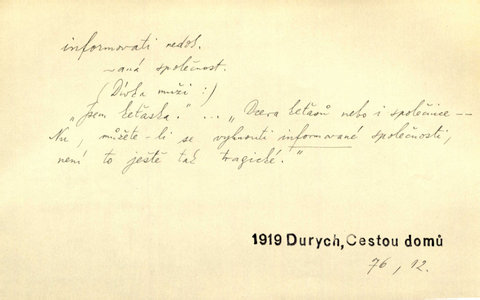 informovati nedok.
~aná společnost.
(Dívka muži :)
"Jsem keťaska." ... "Dcera keťasů nebo i společnice --
Nu, můžete-li se vyhnouti informované společnosti,
není to ještě tak tragické."
1919 Durych, Cestou domů
76, 12.